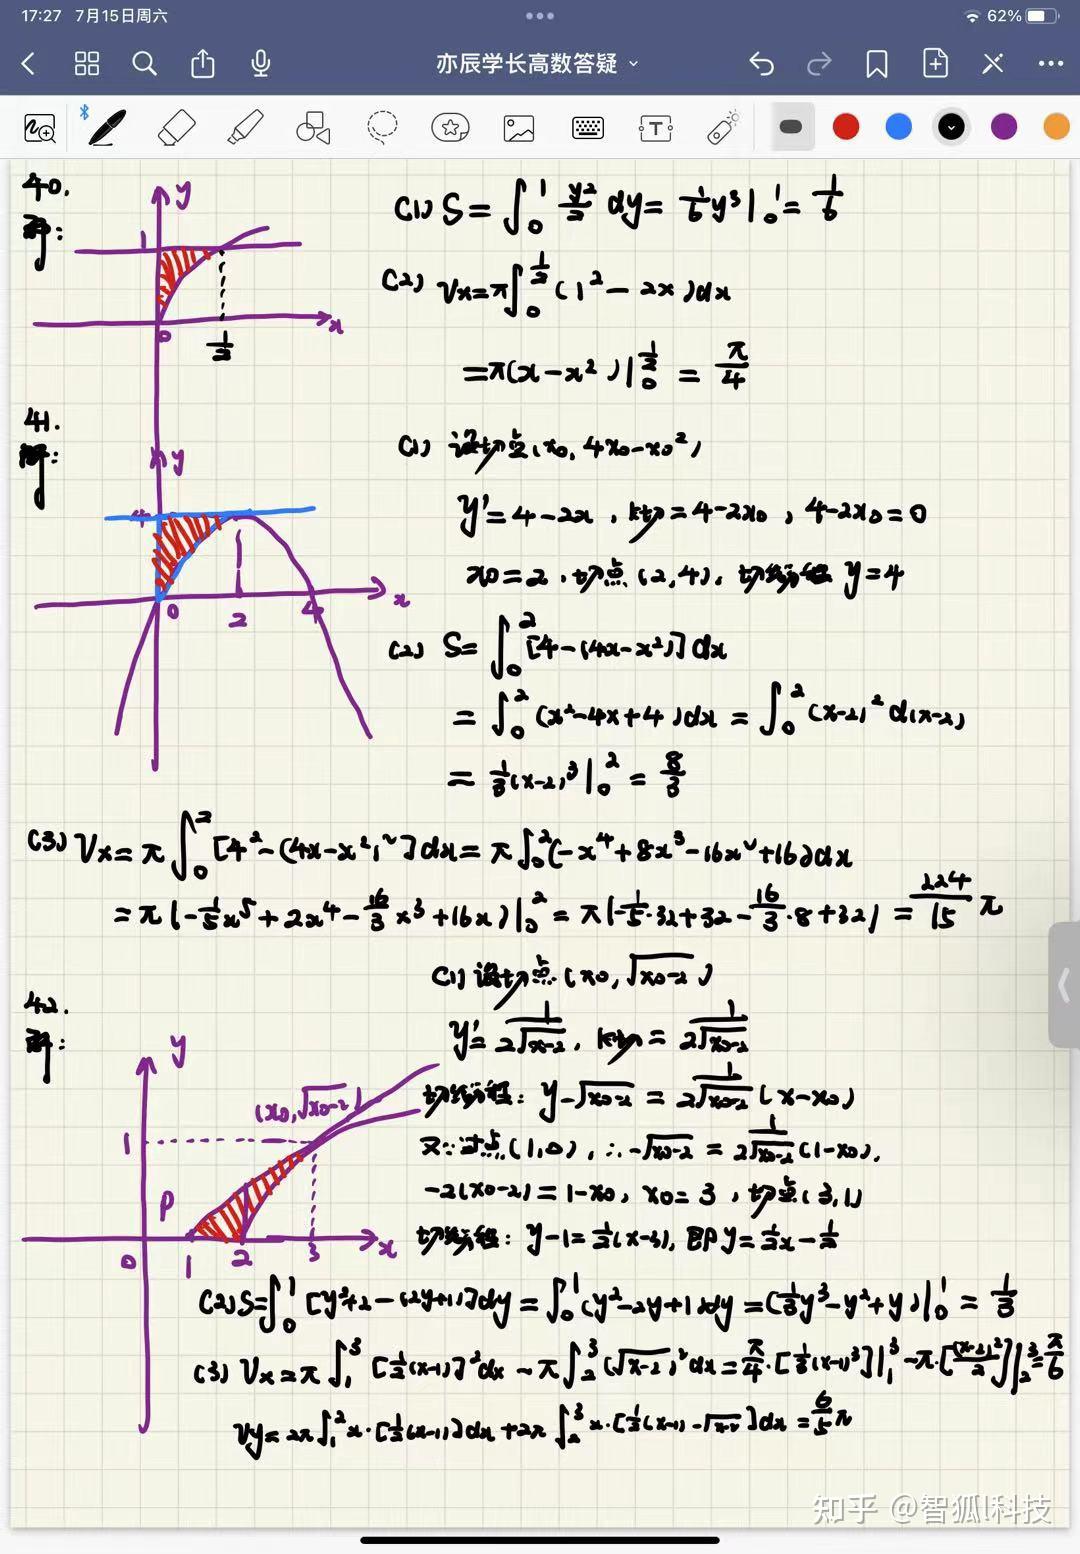 17:27 7月15日周六
62%
亦辰学长高数答疑
40.
解:
y
1
0
x
1/2
(1) S = ∫₀¹ y²/2 dy = 1/6 y³|₀¹ = 1/6
(2) Vx = π∫₀^(1/2) (1² - 2x)dx
= π(x - x²)|₀^(1/2) = π/4
41.
解:
y
4
0
2
4
x
(1) 设切点(x0, 4x0-x0²)
y' = 4-2x, k切 = 4-2x0, 4-2x0=0
x0=2, 切点(2,4), 切线方程 y=4
(2) S = ∫₀² [4-(4x-x²)]dx
= ∫₀² (x²-4x+4)dx = ∫₀² (x-2)² d(x-2)
= 1/3(x-2)³|₀² = 8/3
(3) Vx = π∫₀² [4²-(4x-x²)²]dx = π∫₀² (-x⁴+8x³-16x²+16)dx
= π(-1/5x⁵+2x⁴-16/3x³+16x)|₀² = π(-1/5·32+32-16/3·8+32) = 224/15 π
42.
解:
y
(x0, √(x0-2))
1
P
0
1
2
3
x
(1) 设切点(x0, √(x0-2))
y' = 1/(2√(x-2)), k切 = 1/(2√(x0-2))
切线方程: y-√(x0-2) = 1/(2√(x0-2)) (x-x0)
又∵过点(1,0), ∴-√(x0-2) = 1/(2√(x0-2)) (1-x0),
-2(x0-2)=1-x0, x0=3, 切点(3,1)
切线方程: y-1=1/2(x-3), 即y=1/2x-1/2
(2) S=∫₀¹ [y²+2-(2y+1)]dy = ∫₀¹ (y²-2y+1)dy = (1/3y³-y²+y)|₀¹ = 1/3
(3) Vx = π∫₁³ [1/2(x-1)]²dx - π∫₂³ (√(x-2))²dx = π/4·[1/3(x-1)³]|₁³ - π·[(x-2)²/2]|₂³ = π/6
Vy = 2π∫₁² x·[1/2(x-1)]dx + 2π∫₂³ x·[1/2(x-1)-√(x-2)]dx = 6/5 π
知乎 @智狐l科技